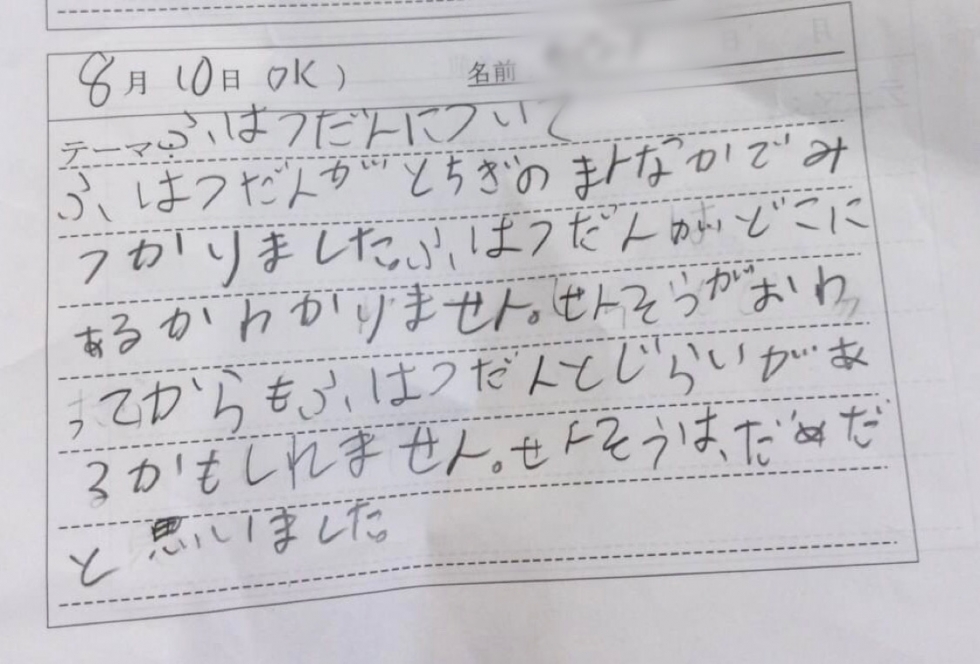 8月10日(水) 名前
テーマ:ふはつだんについて
ふはつだんがとちぎのまんなかでみ
つかりました。ふはつだんがどこに
あるかわかりません。せんそうがおわ
ってからもふはつだんとじらいがあ
るかもしれません。せんそうは、だめだ
と思いました。